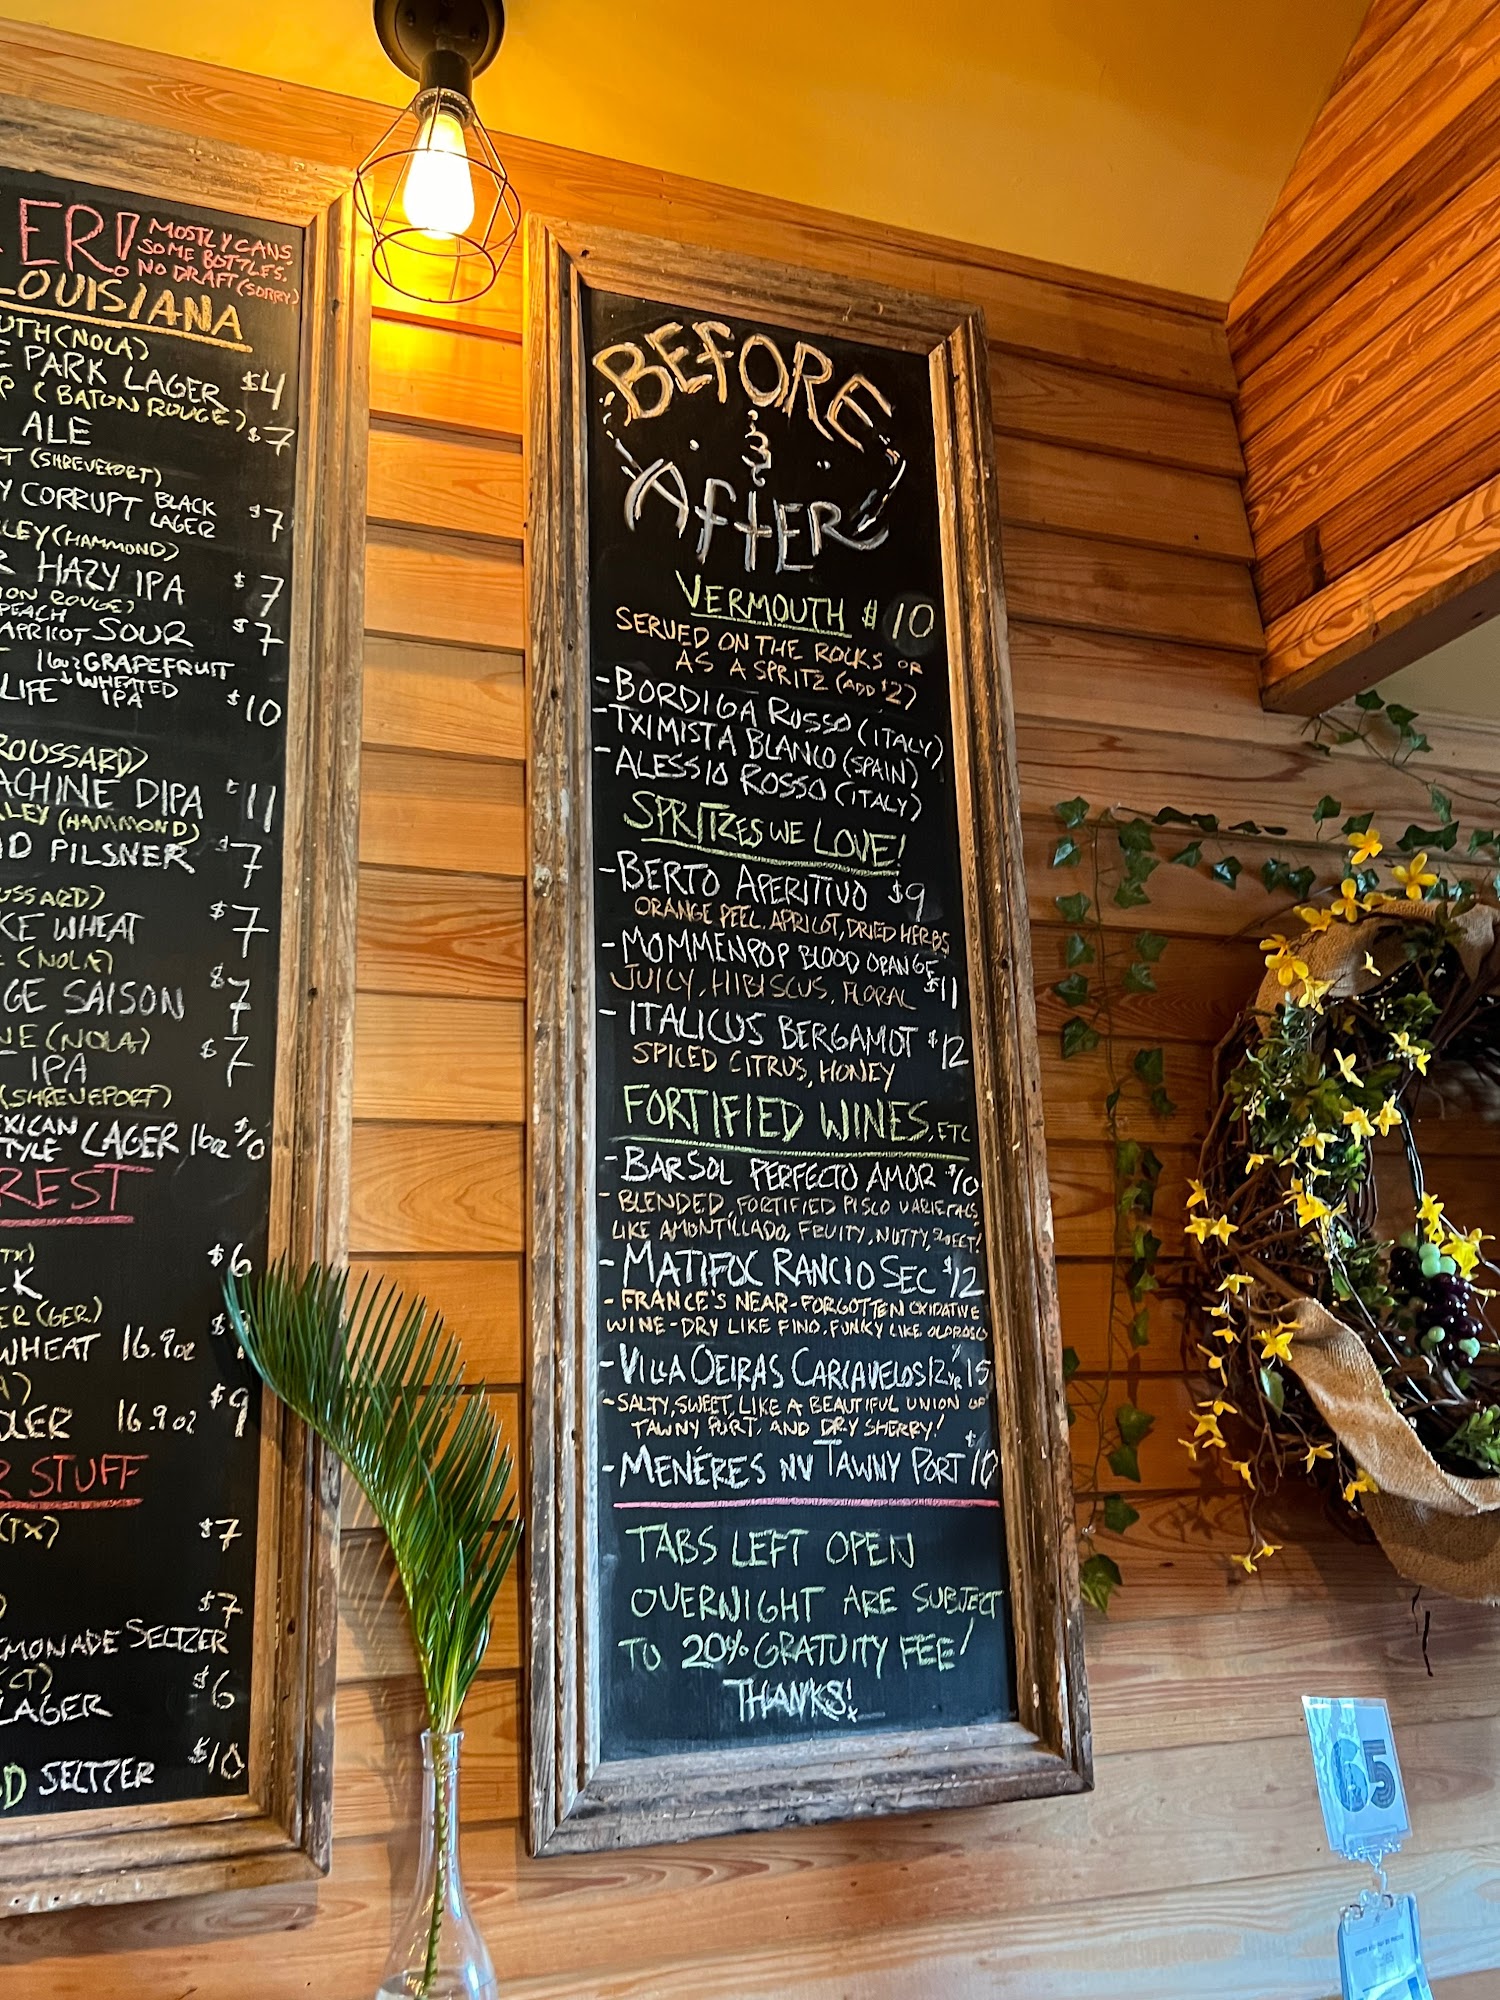 ER!
MOSTLY CANS,
SOME BOTTLES.
NO DRAFT (SORRY)
LOUISIANA
UTH (NOLA)
E PARK LAGER $4
(BATON ROUGE)
ALE $7
T (SHREVEPORT)
Y CORRUPT BLACK
LAGER $7
LEY (HAMMOND)
R HAZY IPA $7
ON ROUGE)
PEACH
APRICOT SOUR $7
16oz GRAPEFRUIT
LIFE WHEATED
IPA $10
ROUSSARD)
ACHINE DIPA 11
LEY (HAMMOND)
ID PILSNER $7
USSARD)
KE WHEAT $7
E (NOLA)
GE SAISON $7
NE (NOLA)
IPA $7
(SHREVEPORT)
EXICAN
TYLE LAGER 16oz $10
REST
TX)
CK $6
ER (GER)
WHEAT 16.9oz
A)
DLER 16.9oz $9
R STUFF
(TX)
$7
$7
EMONADE SELTZER
CT)
LAGER $6
D SELTZER $10
BEFORE
&
AFTER
VERMOUTH $10
SERVED ON THE ROCKS OR
AS A SPRITZ (ADD $2)
-BORDIGA ROSSO (ITALY)
-TXIMISTA BLANCO (SPAIN)
-ALESSIO ROSSO (ITALY)
SPRITZES WE LOVE!
-BERTO APERITIVO $9
ORANGE PEEL, APRICOT, DRIED HERBS
-MOMMENPOP BLOOD ORANGE
JUICY, HIBISCUS, FLORAL $11
-ITALICUS BERGAMOT $12
SPICED CITRUS, HONEY
FORTIFIED WINES, ETC
-BARSOL PERFECTO AMOR $10
-BLENDED, FORTIFIED PISCO VARIETALS,
LIKE AMONTILLADO, FRUITY, NUTTY, SWEET!
-MATIFOC RANCIO SEC $12
-FRANCE'S NEAR-FORGOTTEN OXIDATIVE
WINE-DRY LIKE FINO, FUNKY LIKE OLOROSO
-VILLA OEIRAS CARCAVELOS 12YR 15
-SALTY, SWEET, LIKE A BEAUTIFUL UNION OF
TAWNY PORT, AND DRY SHERRY!
-MENÉRES NV TAWNY PORT $10
TABS LEFT OPEN
OVERNIGHT ARE SUBJECT
TO 20% GRATUITY FEE!
THANKS!
65